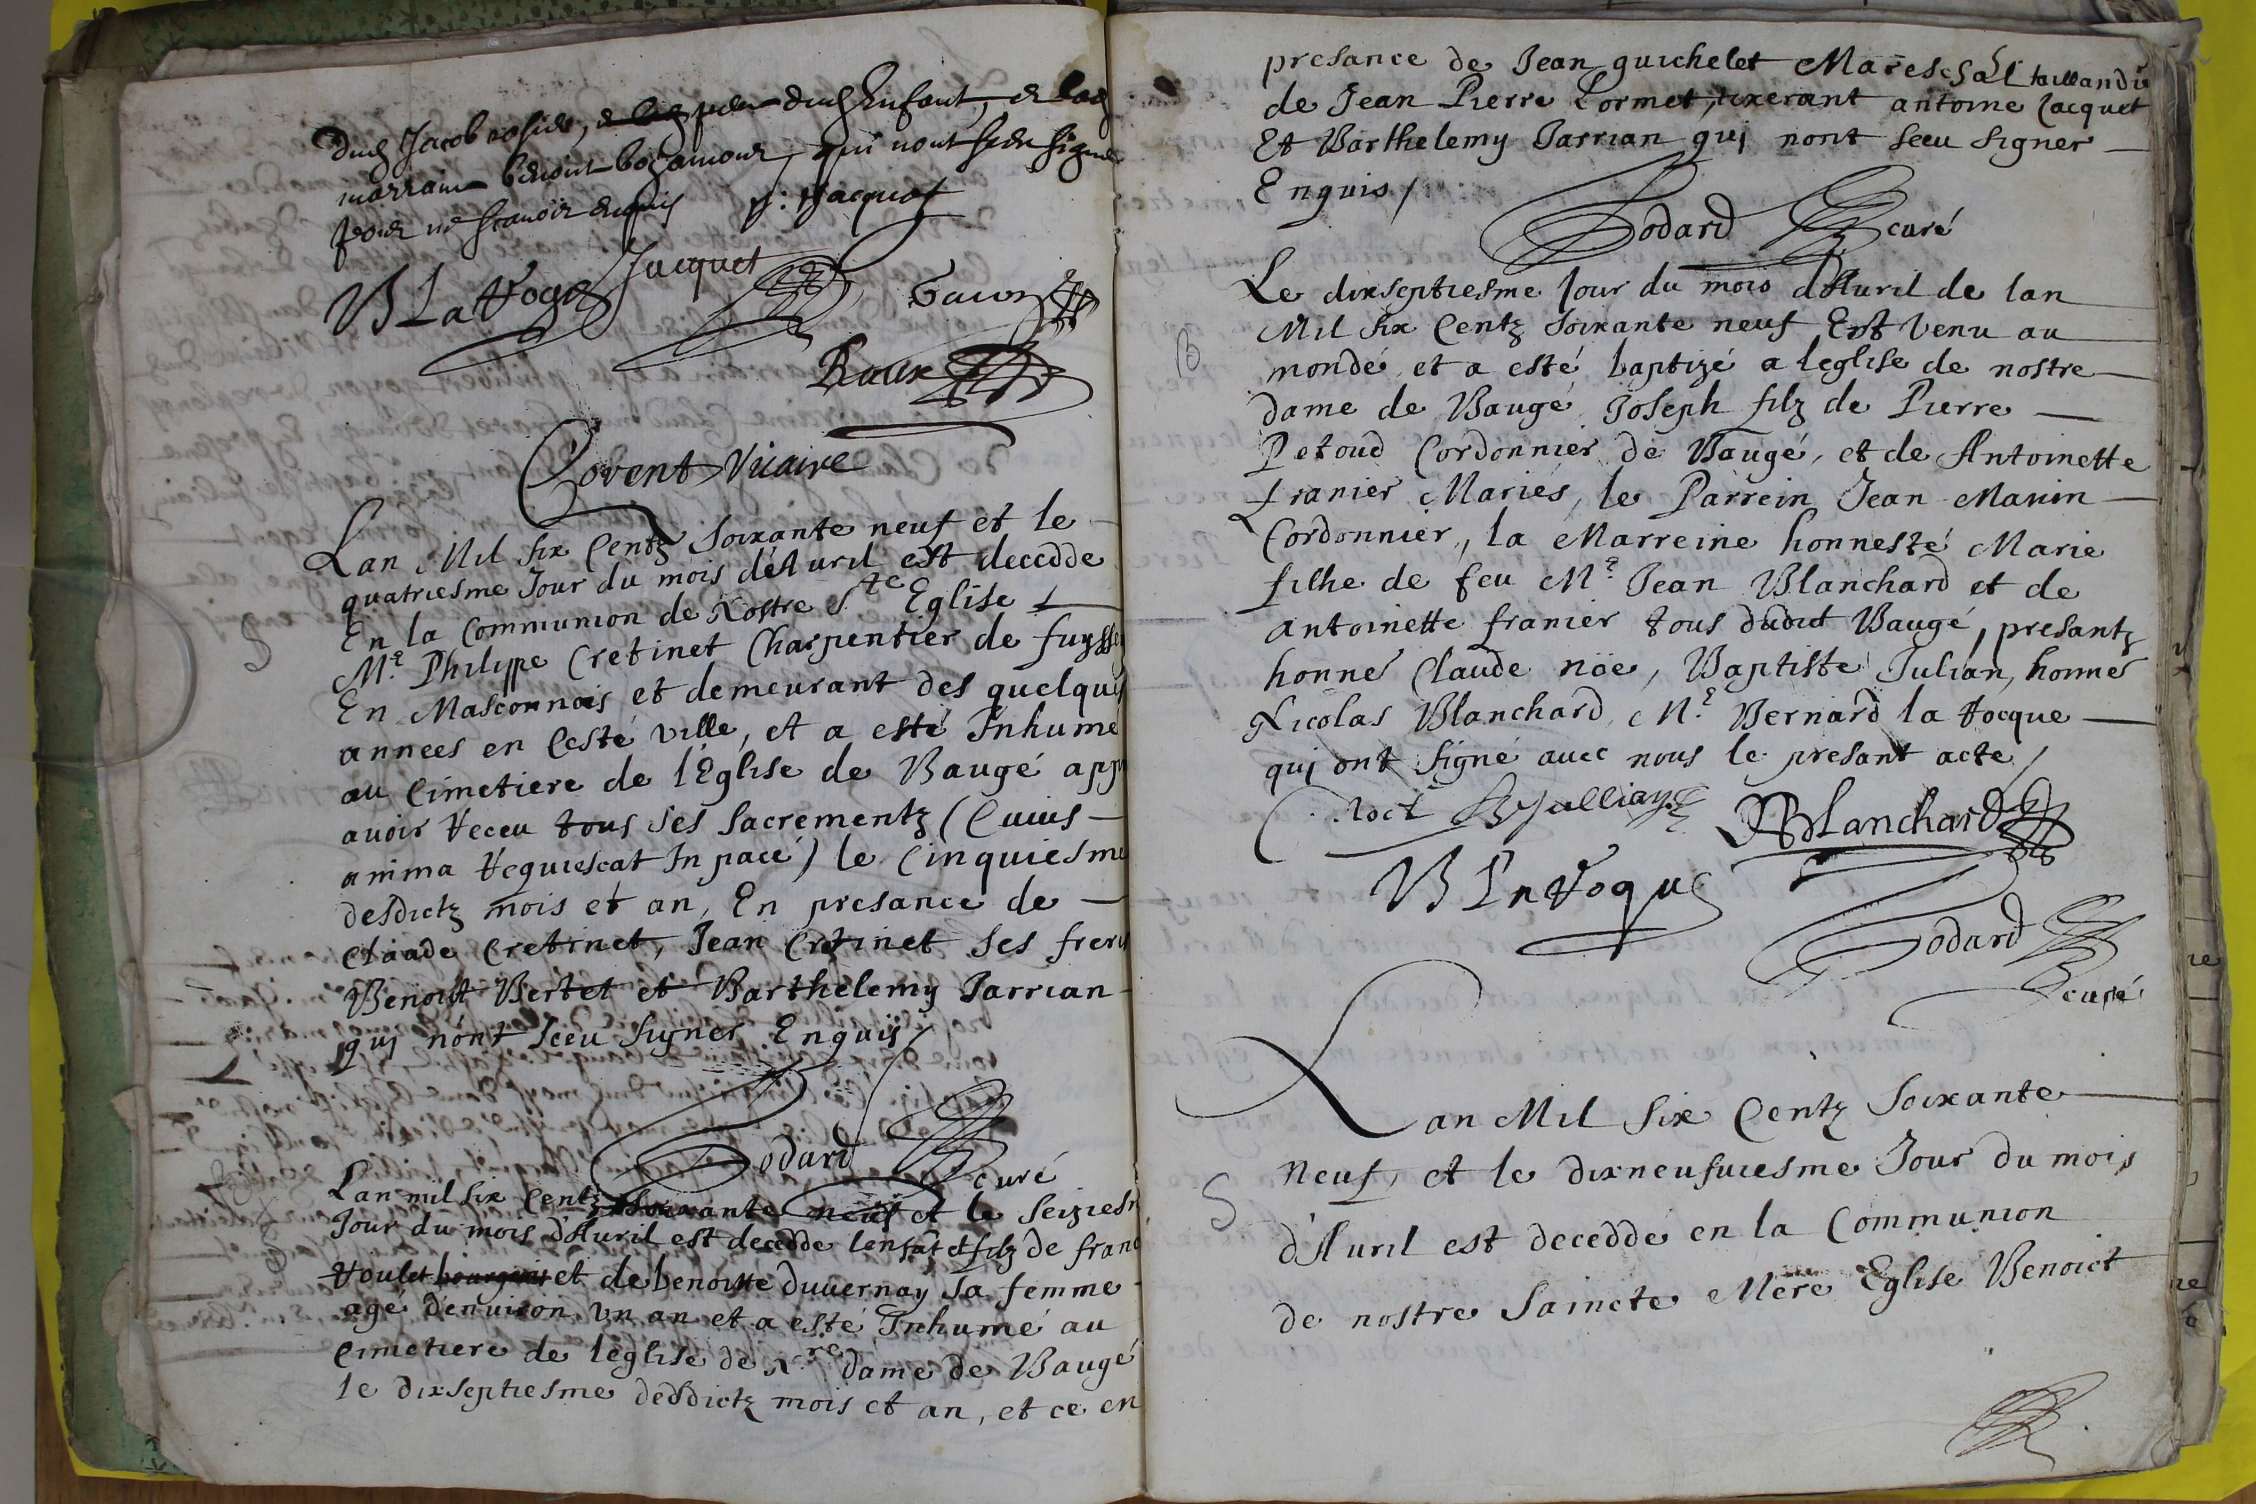 dud Jacob rosier, pere dud Enfant, et lad
marraine benoite qui nont sceu signe
pour ne scauoir enquis P: Jacquet
B La Voge Jacquet
Roux
Covent Vicaire
Lan Mil six Centz Soixante neuf et le
quatriesme Jour du mois d'Auril est decedde
En la Communion de Nostre Ste Eglise
S
Me Philippe Cretinet Charpentier de fuysse
En Masconnois et demeurant des quelques
annees en Ceste ville, et a esté Inhume
au Cimetiere de l'Eglise de Baugé app
auoir receu tous ses sacrementz (Cuius
anima requiescat In pace) le Cinquiesme
desdictz mois et an, En presance de
Claude Cretinet, Jean Cretinet ses freres
Benoist Bertet et Barthelemy Jarrian
qui nont sceu signer Enquis
Godard curé
Lan mil six Centz Soixante neuf et le seiziesm
Jour du mois d'Auril est decedde lenfat et filz de franc
voulet bourgeois et de benoitte duuernay sa femme
agé d'enuiron vn an et a esté Inhumé au
Cimetiere de leglise de Nre dame de Baugé
le dixseptiesme desdictz mois et an, et ce en
presance de Jean guichelet Mareschal taillandie
de Jean Pierre Cormet, tixerant antoine Jacquet
Et Barthelemy Jarrian qui nont sceu signer
Enquis
Godard curé
Le dixseptiesme Jour du mois d'Auril de lan
Mil six Centz soixante neuf Est venu au
B
monde et a esté baptizé a leglise de nostre
dame de Baugé Joseph filz de Pierre
Petoud Cordonnier de Baugé, et de Antoinette
franier Mariés, le Parrein Jean Manin
Cordonnier, la Marreine honneste Marie
filhe de feu Me Jean Blanchard et de
antoinette franier tous dudict Baugé, presantz
honne Claude nöe, Baptiste Julian, honne
Nicolas Blanchard, Me Bernard la vocque
qui ont signé auec nous le presant acte
C. Noel B Julliay Blanchard
B La Voque
Godard
curé
Lan Mil six Centz soixante
neuf, et le dixneufuiesme Jour du mois
S
d'Auril est decedde en la Communion
de nostre Saincte Mere Eglise Benoict